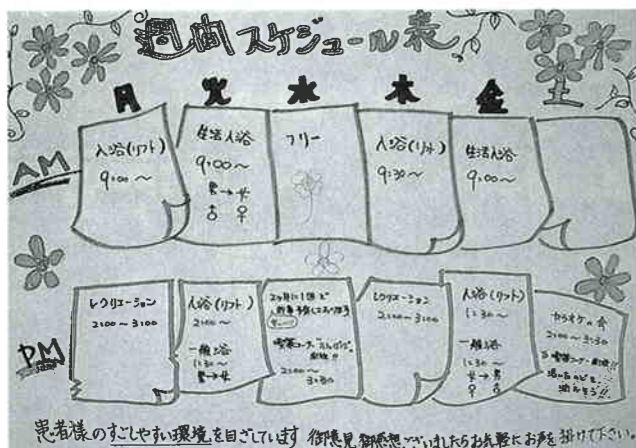 週間スケジュール表
月 火 水 木 金 土
AM
入浴(リフト)
9:00～
生活入浴
9:00～
男→女
♂ ♀
フリー
入浴(リフト)
9:30～
生活入浴
9:00～
PM
レクリエーション
2:00～3:00
入浴(リフト)
2:00～
一般浴
1:30～
男→女
2ヶ月に1回
喫茶コーナー
2:00～
3:00
レクリエーション
2:00～3:00
入浴(リフト)
1:30～
一般浴
1:30～
女→男
♀ ♂
カラオケの会
2:00～3:30
喫茶コーナー
患者様のすごしやすい環境を目ざしています 御意見御感想ございましたらお気軽にお声を掛けて下さい。